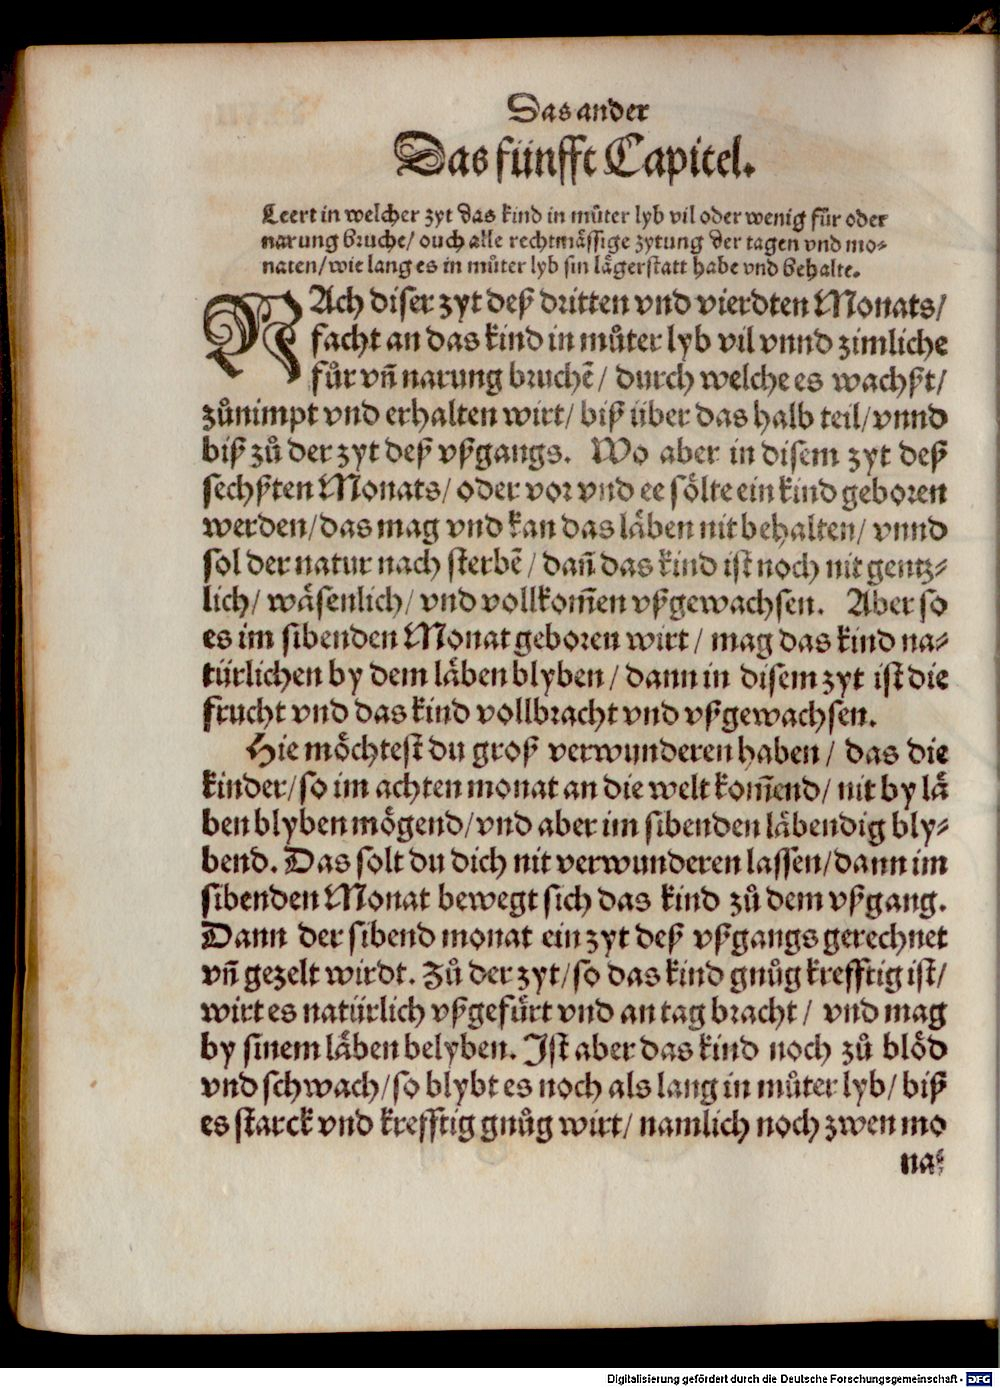 Das ander
Das fünfft Capitel.
Leert in welcher zyt das kind in můter lyb vil oder wenig für oder
narung bruche/ ouch alle rechtmässige zytung der tagen vnd mo-
naten/ wie lang es in můter lyb sin lägerstatt habe vnd behalte.
NAch diser zyt deß dritten vnd vierdten Monats/
facht an das kind in můter lyb vil vnnd zimliche
für vñ narung bruchẽ/ durch welche es wachßt/
zůnimpt vnd erhalten wirt/ biß über das halb teil/ vnnd
biß zů der zyt deß vßgangs. Wo aber in disem zyt deß
sechßten Monats/ oder vor vnd ee sölte ein kind geboren
werden/ das mag vnd kan das läben nit behalten/ vnnd
sol der natur nach sterbẽ/ dañ das kind ist noch nit gentz-
lich/ wäsenlich/ vnd vollkom̃en vßgewachsen. Aber so
es im sibenden Monat geboren wirt/ mag das kind na-
türlichen by dem läben blyben/ dann in disem zyt ist die
frucht vnd das kind vollbracht vnd vßgewachsen.
Hie möchtest du groß verwunderen haben/ das die
kinder/ so im achten monat an die welt kom̃end/ nit by lä
ben blyben mögend/ vnd aber im sibenden läbendig bly-
bend. Das solt du dich nit verwunderen lassen/ dann im
sibenden Monat bewegt sich das kind zů dem vßgang.
Dann der sibend monat ein zyt deß vßgangs gerechnet
vñ gezelt wirdt. Zů der zyt/ so das kind gnůg krefftig ist/
wirt es natürlich vßgefürt vnd an tag bracht/ vnd mag
by sinem läben belyben. Ist aber das kind noch zů blöd
vnd schwach/ so blybt es noch als lang in můter lyb/ biß
es starck vnd krefftig gnůg wirt/ namlich noch zwen mo
na-
Digitalisierung gefördert durch die Deutsche Forschungsgemeinschaft - DFG